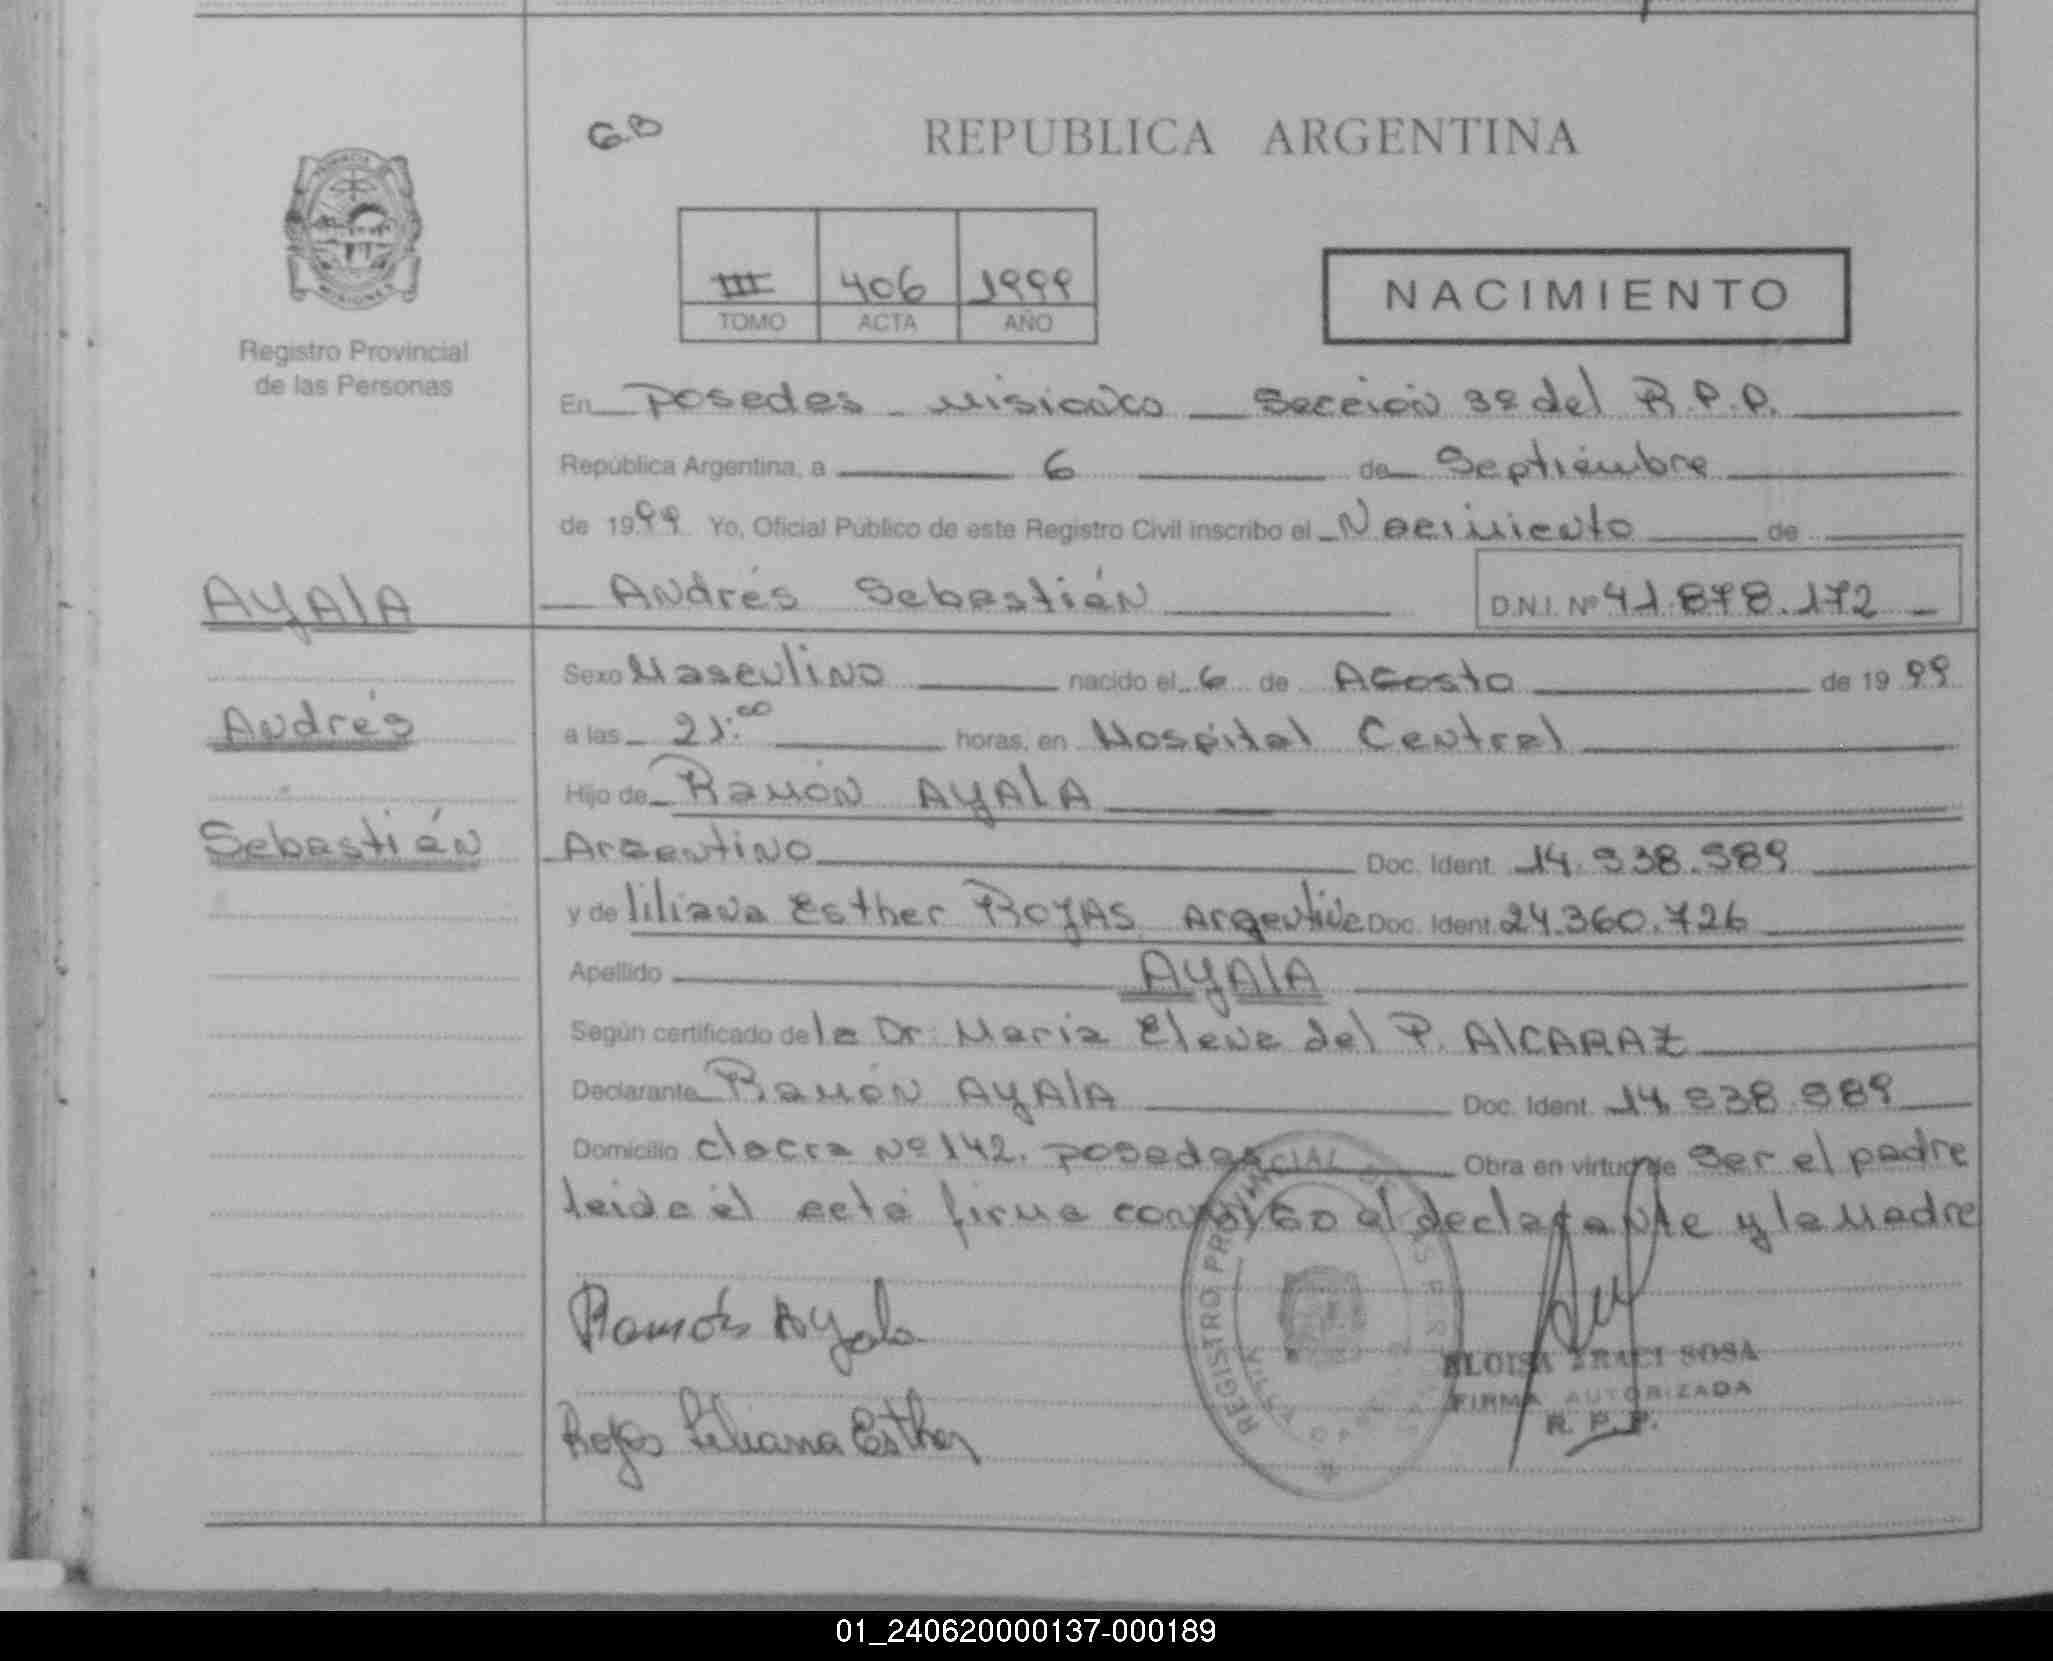 G.B
REPUBLICA ARGENTINA
III 406 1999
TOMO ACTA AÑO
NACIMIENTO
MISIONES
Registro Provincial
de las Personas
En Posadas - Misiones Sección 3º del R.P.P.
República Argentina, a 6 de Septiembre
de 1999 Yo, Oficial Público de este Registro Civil inscribo el Nacimiento de
AYALA
Andrés Sebastián D.N.I. Nº 41.878.172
Sexo Masculino nacido el 6 de Agosto de 1999
Andrés
a las 21:00 horas, en Hospital Central
Hijo de Ramón AYALA
Sebastián
Argentino Doc. Ident. 14.938.989
y de Liliana Esther ROJAS, Argentina Doc. Ident. 24.360.726
Apellido AYALA
Según certificado de la Dr: María Elena del P. ALCARAZ
Declarante Ramón AYALA Doc. Ident. 14.938.989
Domicilio Chacra Nº 142. Posadas Obra en virtud de ser el padre
leida el acta firma conmigo el declarante y la madre
Ramón Ayala
Rojas Liliana Esther
REGISTRO PROVINCIAL DE LAS PERSONAS
ELOISA IRACI SOSA
FIRMA AUTORIZADA
R. P. P.
01_240620000137-000189